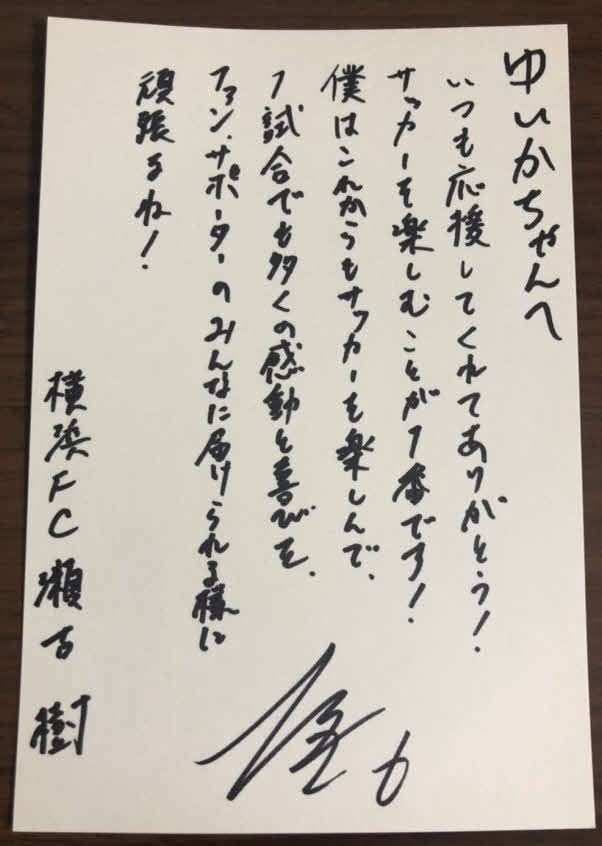 ゆいかちゃんへ
いつも応援してくれてありがとう!
サッカーを楽しむことが1番です!
僕はこれからもサッカーを楽しんで、
1試合でも多くの感動と喜びを、
ファン、サポーターのみんなに届けられる様に
頑張るね!
横浜FC 瀬古 樹
6